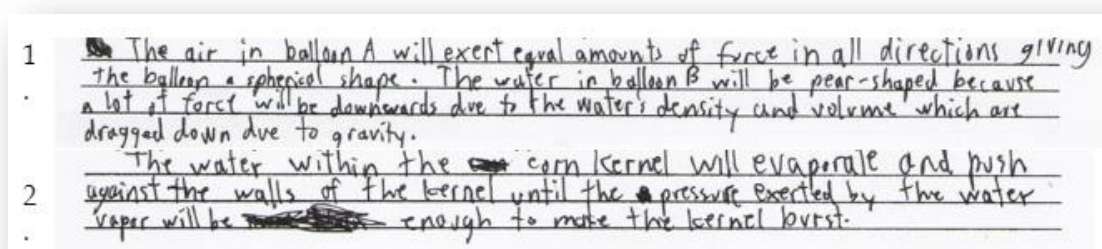 1 The air in balloon A will exert equal amounts of force in all directions giving
. the balloon a spherical shape. The water in balloon B will be pear-shaped because
a lot of force will be downwards due to the water's density and volume which are
dragged down due to gravity.
The water within the corn kernel will evaporate and push
2 against the walls of the kernel until the pressure exerted by the water
. vapor will be enough to make the kernel burst.